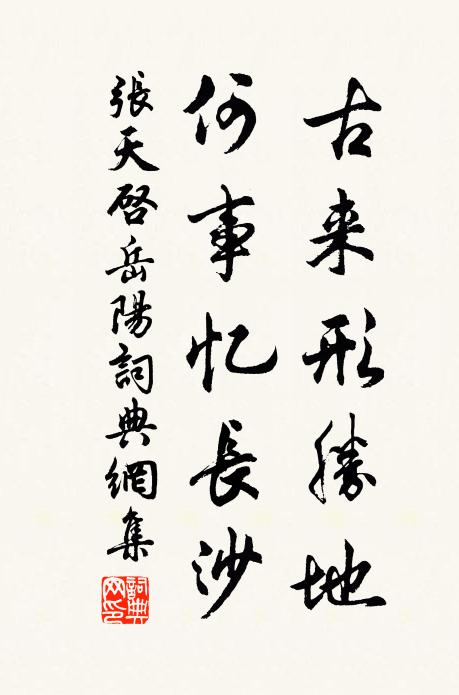 古来形勝地
何事忆長沙
張天啓岳陽詞典網集
詞典網印